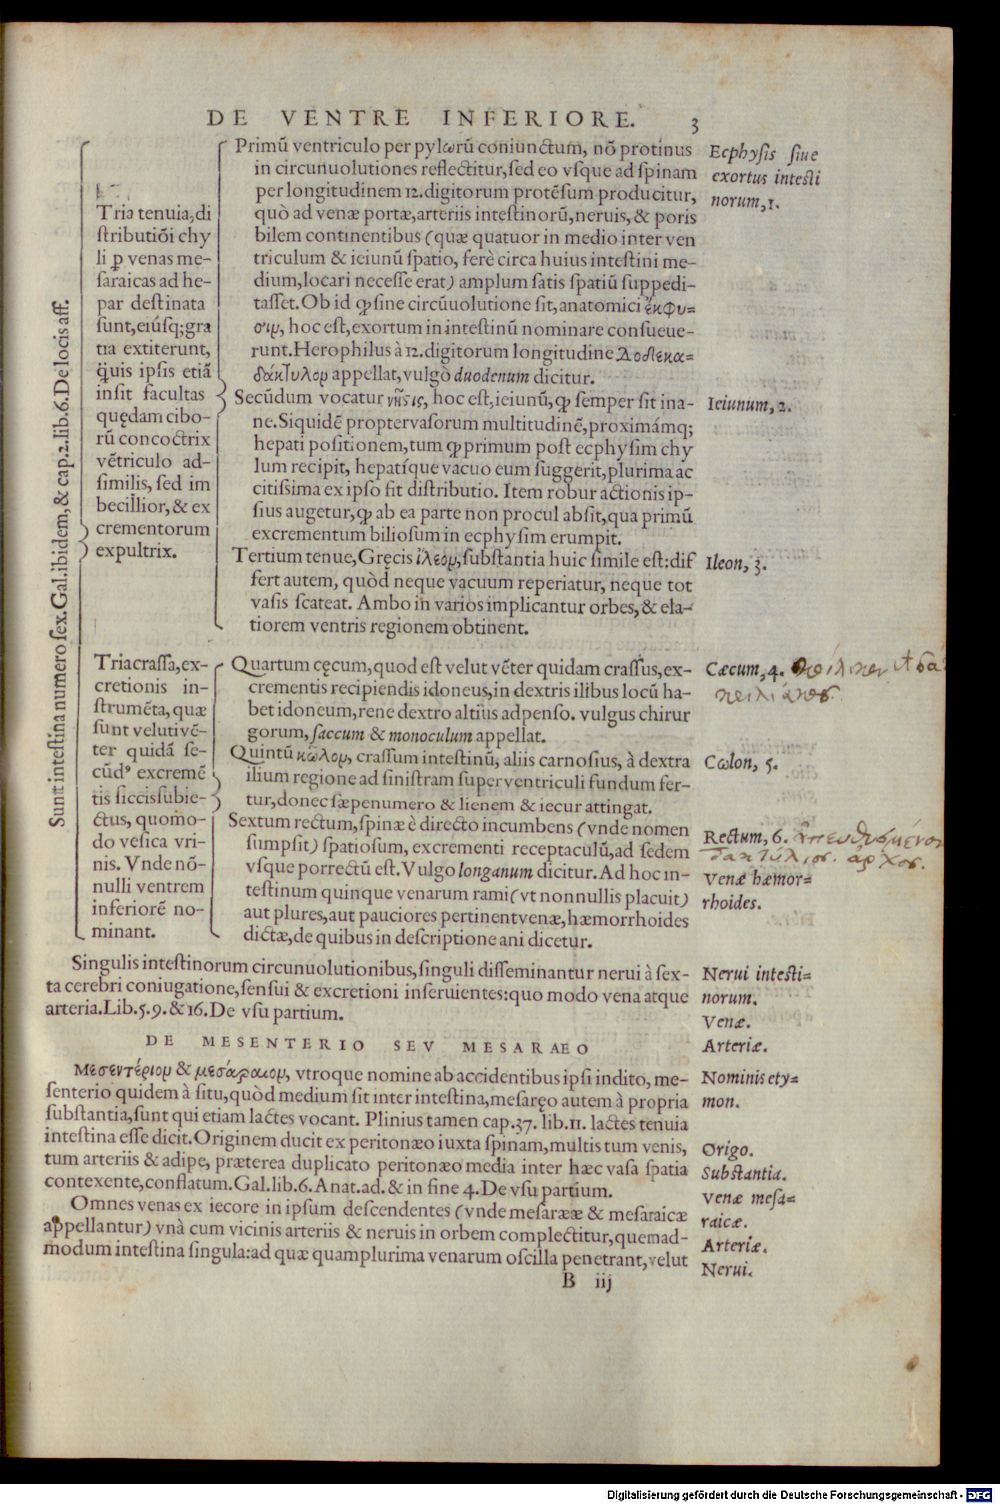 DE VENTRE INFERIORE. 3
Sunt intestina numero sex. Gal. ibidem, & cap. 2. lib. 6. De locis aff.
Tria tenuia, di
stributiōi chy
li ꝑ venas me-
saraicas ad he-
par destinata
sunt, eiúsq; gra
tia extiterunt,
q̄uis ipsis etiā
insit facultas
quędam cibo-
rū concoctrix
vētriculo ad-
similis, sed im
becillior, & ex
crementorum
expultrix.
Primū ventriculo per pylωrū coniunctum, nō protinus
in circunuolutiones reflectitur, sed eo vsque ad spinam
per longitudinem 12. digitorum protēsum producitur,
quò ad venæ portæ, arteriis intestinorū, neruis, & poris
bilem continentibus (quæ quatuor in medio inter ven
triculum & ieiunū spatio, ferè circa huius intestini me-
dium, locari necesse erat) amplum satis spatiū suppedi-
tasset. Ob id ꝙ sine circūuolutione sit, anatomici ἔκφυ=
σιμ, hoc est, exortum in intestinū nominare consueue-
runt. Herophilus à 12. digitorum longitudine δοδεκα=
δάκτυλομ appellat, vulgò duodenum dicitur.
Secūdum vocatur νῆστις, hoc est, ieiunū, ꝙ semper sit ina-
ne. Siquidē propter vasorum multitudinē, proximámq;
hepati positionem, tum ꝙ primum post ecphysim chy
lum recipit, hepatísque vacuo eum suggerit, plurima ac
citissima ex ipso fit distributio. Item robur actionis ip-
sius augetur, ꝙ ab ea parte non procul absit, qua primū
excrementum biliosum in ecphysim erumpit.
Tertium tenue, Gręcis ἰλεόμ, substantia huic simile est: dif
fert autem, quòd neque vacuum reperiatur, neque tot
vasis scateat. Ambo in varios implicantur orbes, & ela-
tiorem ventris regionem obtinent.
Ecphysis siue
exortus intesti
norum, 1.
Ieiunum, 2.
Ileon, 3.
Tria crassa, ex-
cretionis in-
strumēta, quæ
sunt veluti vē-
ter quidā se-
cūdꝰ excremē
tis siccis subie-
ctus, quomo-
do vesica vri-
nis. Vnde nō-
nulli ventrem
inferiorē no-
minant.
Quartum cęcum, quod est velut vēter quidam crassus, ex-
crementis recipiendis idoneus, in dextris ilibus locū ha-
bet idoneum, rene dextro altius adpenso. vulgus chirur
gorum, saccum & monoculum appellat.
Quintū κῶλομ, crassum intestinū, aliis carnosius, à dextra
ilium regione ad sinistram super ventriculi fundum fer-
tur, donec sæpenumero & lienem & iecur attingat.
Sextum rectum, spinæ è directo incumbens (vnde nomen
sumpsit) spatiosum, excrementi receptaculū, ad sedem
vsque porrectū est. Vulgo longanum dicitur. Ad hoc in-
testinum quinque venarum rami (vt nonnullis placuit)
aut plures, aut pauciores pertinent venæ, hæmorrhoides
dictæ, de quibus in descriptione ani dicetur.
Cæcum, 4.
Cωlon, 5.
Rectum, 6. ἀπευθυσμένον
δακτύλιος. ἀρχος.
Venæ hæmor=
rhoides.
Singulis intestinorum circunuolutionibus, singuli disseminantur nerui à sex-
ta cerebri coniugatione, sensui & excretioni inseruientes: quo modo vena atque
arteria. Lib. 5. 9. & 16. De vsu partium.
Nerui intesti=
norum.
Venæ.
Arteriæ.
DE MESENTERIO SEV MESARAEO
Μεσεντέριομ & μεσάραιομ, vtroque nomine ab accidentibus ipsi indito, me-
senterio quidem à situ, quòd medium sit inter intestina, mesaręo autem à propria
substantia, sunt qui etiam lactes vocant. Plinius tamen cap. 37. lib. 11. lactes tenuia
intestina esse dicit. Originem ducit ex peritonæo iuxta spinam, multis tum venis,
tum arteriis & adipe, præterea duplicato peritonæo media inter hæc vasa spatia
contexente, conflatum. Gal. lib. 6. Anat. ad. & in fine 4. De vsu partium.
Omnes venas ex iecore in ipsum descendentes (vnde mesarææ & mesaraicæ
appellantur) vnà cum vicinis arteriis & neruis in orbem complectitur, quemad-
modum intestina singula: ad quæ quamplurima venarum oscilla penetrant, velut
Nominis ety=
mon.
Origo.
Substantia.
venæ mesa=
raicæ.
Arteriæ.
Nerui.
B iij
Digitalisierung gefördert durch die Deutsche Forschungsgemeinschaft - DFG